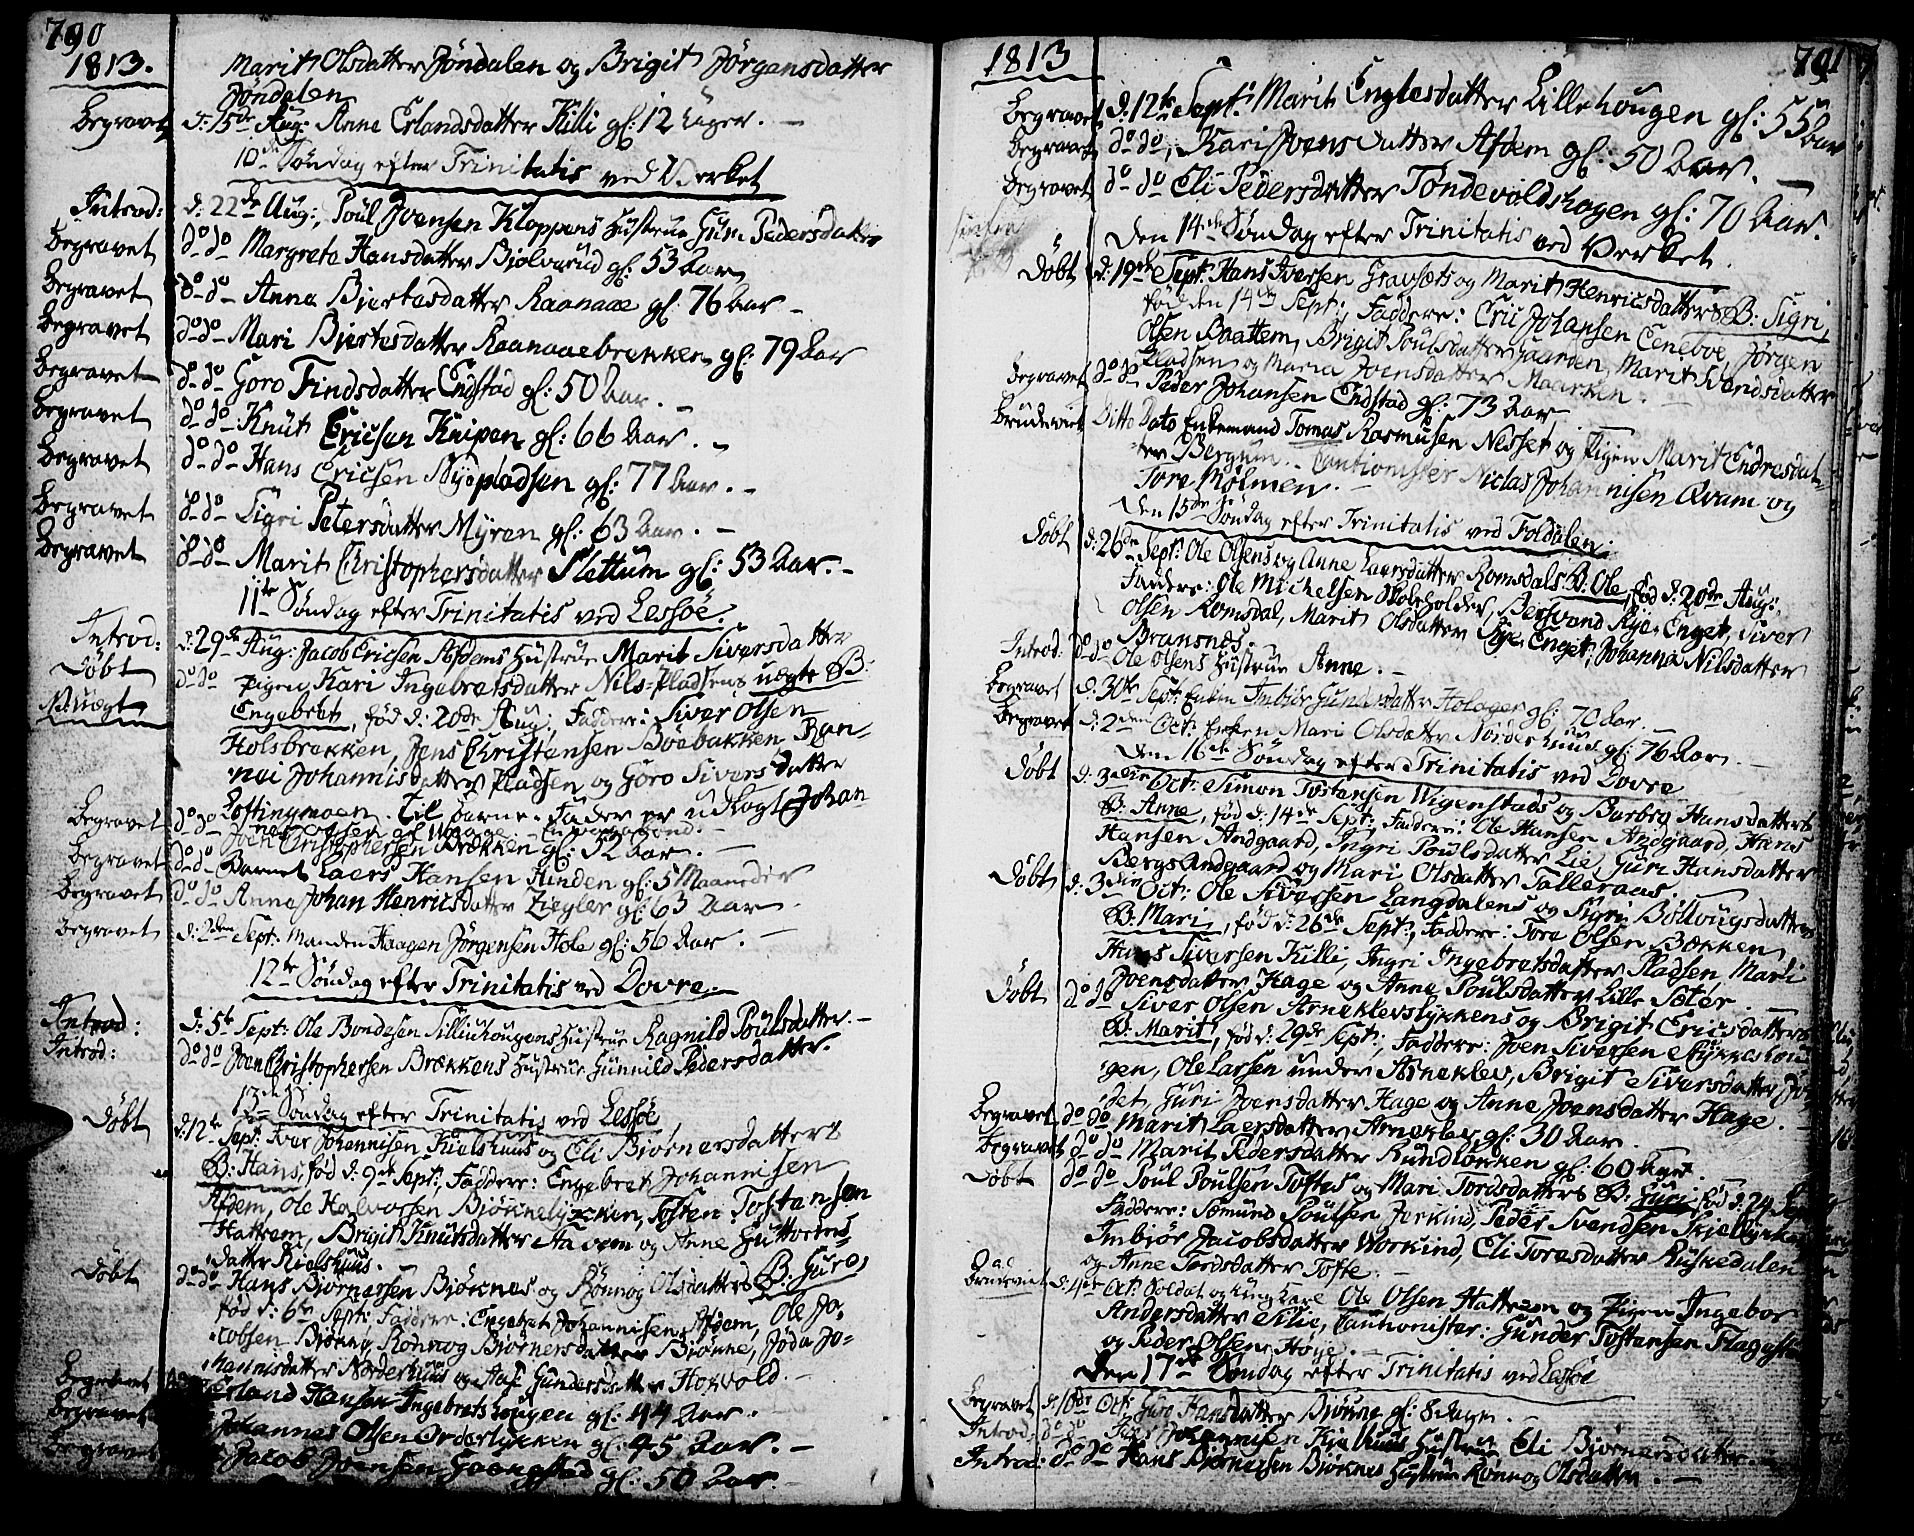 790
1813.
Marit Olsdatter Jøndalen og Brigit Jørgensdatter
Jøndalen
Begravet d: 15de Aug: Anne Erlandsdatter Killi gl: 12 Uger. —
10de Søndag efter Trinitatis ved Verket
Introd: d: 22de Aug: Poul Joensen Kloppens Hustrue Guni Pedersdatter
Begravet do do Margrete Hansdatter Bjølverud gl: 53 Aar
Begravet do do Anne Biertesdatter Raanaae gl: 76 Aar —
Begravet do do Mari Biertesdatter Raanaaebrekken gl: 79 Aar
Begravet do do Goro Findsdatter Endstad gl: 50 Aar. —
Begravet do do Knut Ericsen Knipen gl: 66 Aar. —
Begravet do do Hans Ericsen Nyepladsen gl: 77 Aar. —
Begravet do do Sigri Petersdatter Myren gl: 63 Aar. —
Begravet do do Marit Christophersdatter Slettum gl: 53 Aar. —
11te Søndag efter Trinitatis ved Lessøe.
Introd: d: 29de Aug: Jacob Ericsen Afdems Hustrue Marit Siversdatter
Døbt do do Pigen Kari Ingebretsdatter Nils-Pladsens uægte B:
Engebret, fød d: 20de Aug: Faddere: Siver Olsen
Holsbrekken, Jens Christensen Bøebakken, Ran-
nei Johannisdatter Pladsen og Goro Siversdatter
Loftingmoen. Til Barne-Fader er udlagt Johan
Begravet do do Joen Christophersen Brekken gl: 52 Aar. —
Begravet do do Barnet Laers Hansen Kinden gl: 5 Maaneder
Begravet do do Anne Johan Henricsdatter Ziegler gl: 63 Aar
Begravet d: 2den Sept: Manden Haagen Jørgensen Hole gl: 56 Aar. —
12te Søndag efter Trinitatis ved Dovre.
Introd: d: 5te Sept: Ole Bondesen Silliuhougens Hustrue Ragnild Poulsdatter. —
Introd: do do Joen Christophersen Brækkens Hustrue Gunnild Pedersdatter.
13de Søndag efter Trinitatis ved Lessøe
Døbt d: 12te Sept: Iver Johannisen Kielshuus og Eli Biørnersdatters
B: Hans, fød d: 9de Sept:, Faddere: Engebret Johannisen
Afdem, Ole Halvorsen Biønnelykken, Tosten Tostensen
Hattrem, Brigit Knudsdatter og Anne Guttorms-
datter Kielshuus.
Døbt do do Hans Biørnersen Biøknes og Rønnog Olsdatters B: Guro,
fød d: 6te Sept: Faddere: Engebret Johannisen Afdem, Ole Ja-
cobsen Biønne, Rønnog Biørnersdatter Biønne, Joda Jo-
hannisdatter Norderhuus og Aase Gundersdatter Horvold. —
Begravet Erland Hansen Ingebretshougen gl: 44 Aar. —
Begravet Johannes Olsen Orderlykken gl: 45 Aar. —
Begravet Jacob Joensen gl: 50 Aar. —
1813
791
Begravet d: 12te Sept: Marit Englesdatter Lillehougen gl: 55 Aar
Begravet do do, Kari Joensdatter Afdem gl: 50 Aar.
Begravet do do Eli Pedersdatter Tøndevoldshagen gl: 70 Aar.
Den 14de Søndag efter Trinitatis ved Verket.
Døbt d: 19de Sept: Hans Iversen Gravsets og Marit Henricsdatters B: Sigri,
fød den 14de Sept:, Faddere: Eric Johansen Eneboe, Jørgen
Olsen Baattem, Brigit Poulsdatter Gaarden, Marit Svendsdatter
Pladsen og Maria Joensdatter Maarken. —
Begravet do do Peder Johansen Endstad gl: 73 Aar
Brudeviet Ditto Dato Enkemand Tomas Rasmusen Nesset og Pigen Marit Endresdat-
ter Bergum. Cautionister Niclas Johannisen Qvam og
Tore Mølmen. —
Den 15de Søndag efter Trinitatis ved Foldalen:
Døbt d: 26de Sept: Ole Olsens og Anne Laersdatter Romsdals B: Ole, fød d: 20de Aug:,
Faddere: Ole Michelsen Skoleholder, Bersvend Rye-Enget, Siver
Olsen Romsdal, Marit Olsdatter Rye-Enget, Johanna Nilsdatter
Bransnes
Introd: do do Ole Olsens Hustrue Anne. —
Begravet d: 30te Sept: Enken Imbiør Gundersdatter Holager gl: 70 Aar. —
Begravet d: 2den Oct: Enken Mari Olsdatter Norderhuus gl: 76 Aar. —
Den 16de Søndag efter Trinitatis ved Dovre
Døbt d: 3die Oct: Simon Tostensen Wigenstads og Barbro Hansdatters
B: Anne, fød d: 14de Sept: Faddere: Ole Hansen Andgaard, Hans
Hansen Andgaard, Ingri Poulsdatter Lie, Guri Hansdatter
Bergs Andgaard og Mari Olsdatter Talleraas.
Døbt d: 3die Oct: Ole Siversen Langdalens og Sigri Bottougsdatters
B: Mari, fød d: 26de Sept:, Faddere: Tore Olsen Bækken,
Hans Siversen Killi, Ingri Ingebretsdatter Pladsen, Marli
Joensdatter Hage og Anne Poulsdatter Lille Sæter. —
Døbt do do Siver Olsen Arneklevslykkens og Brigit Ericsdatters
B: Marit, fød d: 29de Sept:, Faddere: Joen Siversen Stykkeshou-
gen, Ole Larsen under Arneklev, Brigit Siversdatter
Guri Joensdatter Hage og Anne Joensdatter Hage. —
Begravet do do Marit Laersdatter Arneklev gl: 30 Aar. —
Begravet do do Marit Pedersdatter Rundløkken gl: 60 Aar.
Døbt do do Poul Poulsen Toftes og Mari Tordsdatters B: Guri, fød d: 24 Sept:
Faddere: Semund Poulsen Jerkind, Peder Svendsen
Imbiør Jacobsdatter Workind, Eli Toresdatter Ruskedalen
og Anne Tordsdatter Tofte.
Brudeviet d: 4de Oct: Soldat og Ung Karl Ole Olsen Hattrem og Pigen Ingebor
Andersdatter Silie, Cautionister: Gunder Tostensen
og Peder Olsen Høye. —
Den 17de Søndag efter Trinitatis ved Lessøe
Begravet d: 10de Oct: Guro Hansdatter Biønne gl: 8 Dage. —
Introd: do do Iver Johannisen Kjelshuus Hustrue Eli Biørnersdatter. —
Introd: do do Hans Biørnersen Bioknes Hustrue Rønnog Olsdatter. —